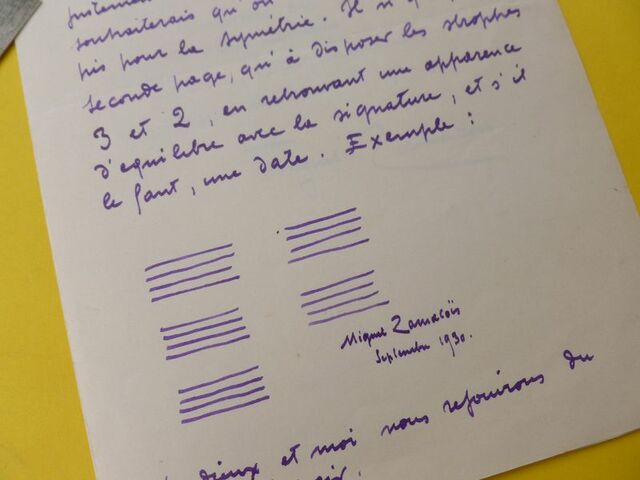 souhaiterais qu'on
pis pour la symétrie. Il n'y
seconde page, qu'à disposer les strophes
3 et 2, en retrouvant une apparence
d'équilibre avec la signature, et s'il
le faut, une date. Exemple :
Miguel Zamacoïs
Septembre 1930.
dieux et moi nous réjouirons du